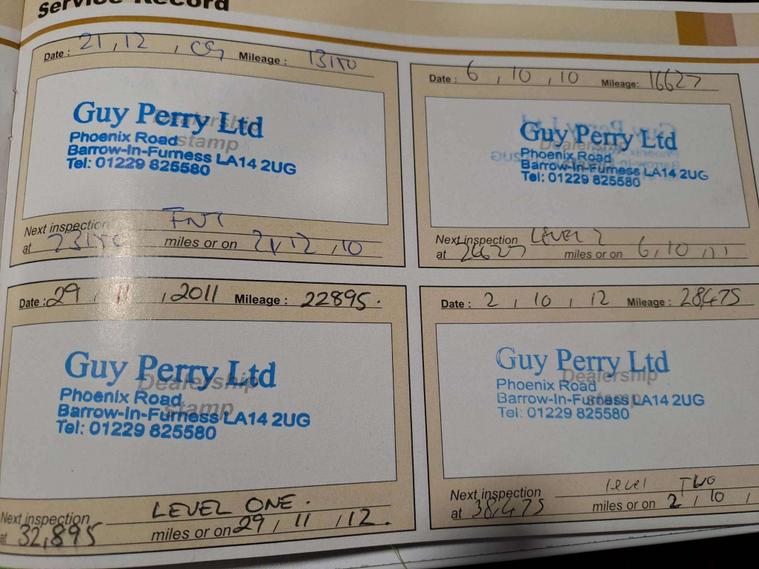 Service Record
Date : 21 , 12 , 09 Mileage : 13150
Guy Perry Ltd
Dealership
Phoenix Road
stamp
Barrow-In-Furness LA14 2UG
Tel: 01229 825580
Next inspection INT
at 23150 miles or on 21 12 , 10
Date : 6 , 10 , 10 Mileage: 16627
Guy Perry Ltd
Phoenix Road
Barrow-In-Furness LA14 2UG
Tel: 01229 825580
Next inspection LEVEL 2
at 26627 miles or on 6 , 10 , 11
Date : 29 , 11 , 2011 Mileage : 22895.
Guy Perry Ltd
Dealership
Phoenix Road
stamp
Barrow-In-Furness LA14 2UG
Tel: 01229 825580
Next inspection LEVEL ONE.
at 32,895 miles or on 29 , 11 , 12.
Date : 2 , 10 , 12 Mileage : 28,475
Guy Perry Ltd
Dealership
Phoenix Road
stamp
Barrow-In-Furness LA14 2UG
Tel: 01229 825580
Next inspection level TWO
at 38,475 miles or on 2 , 10 ,